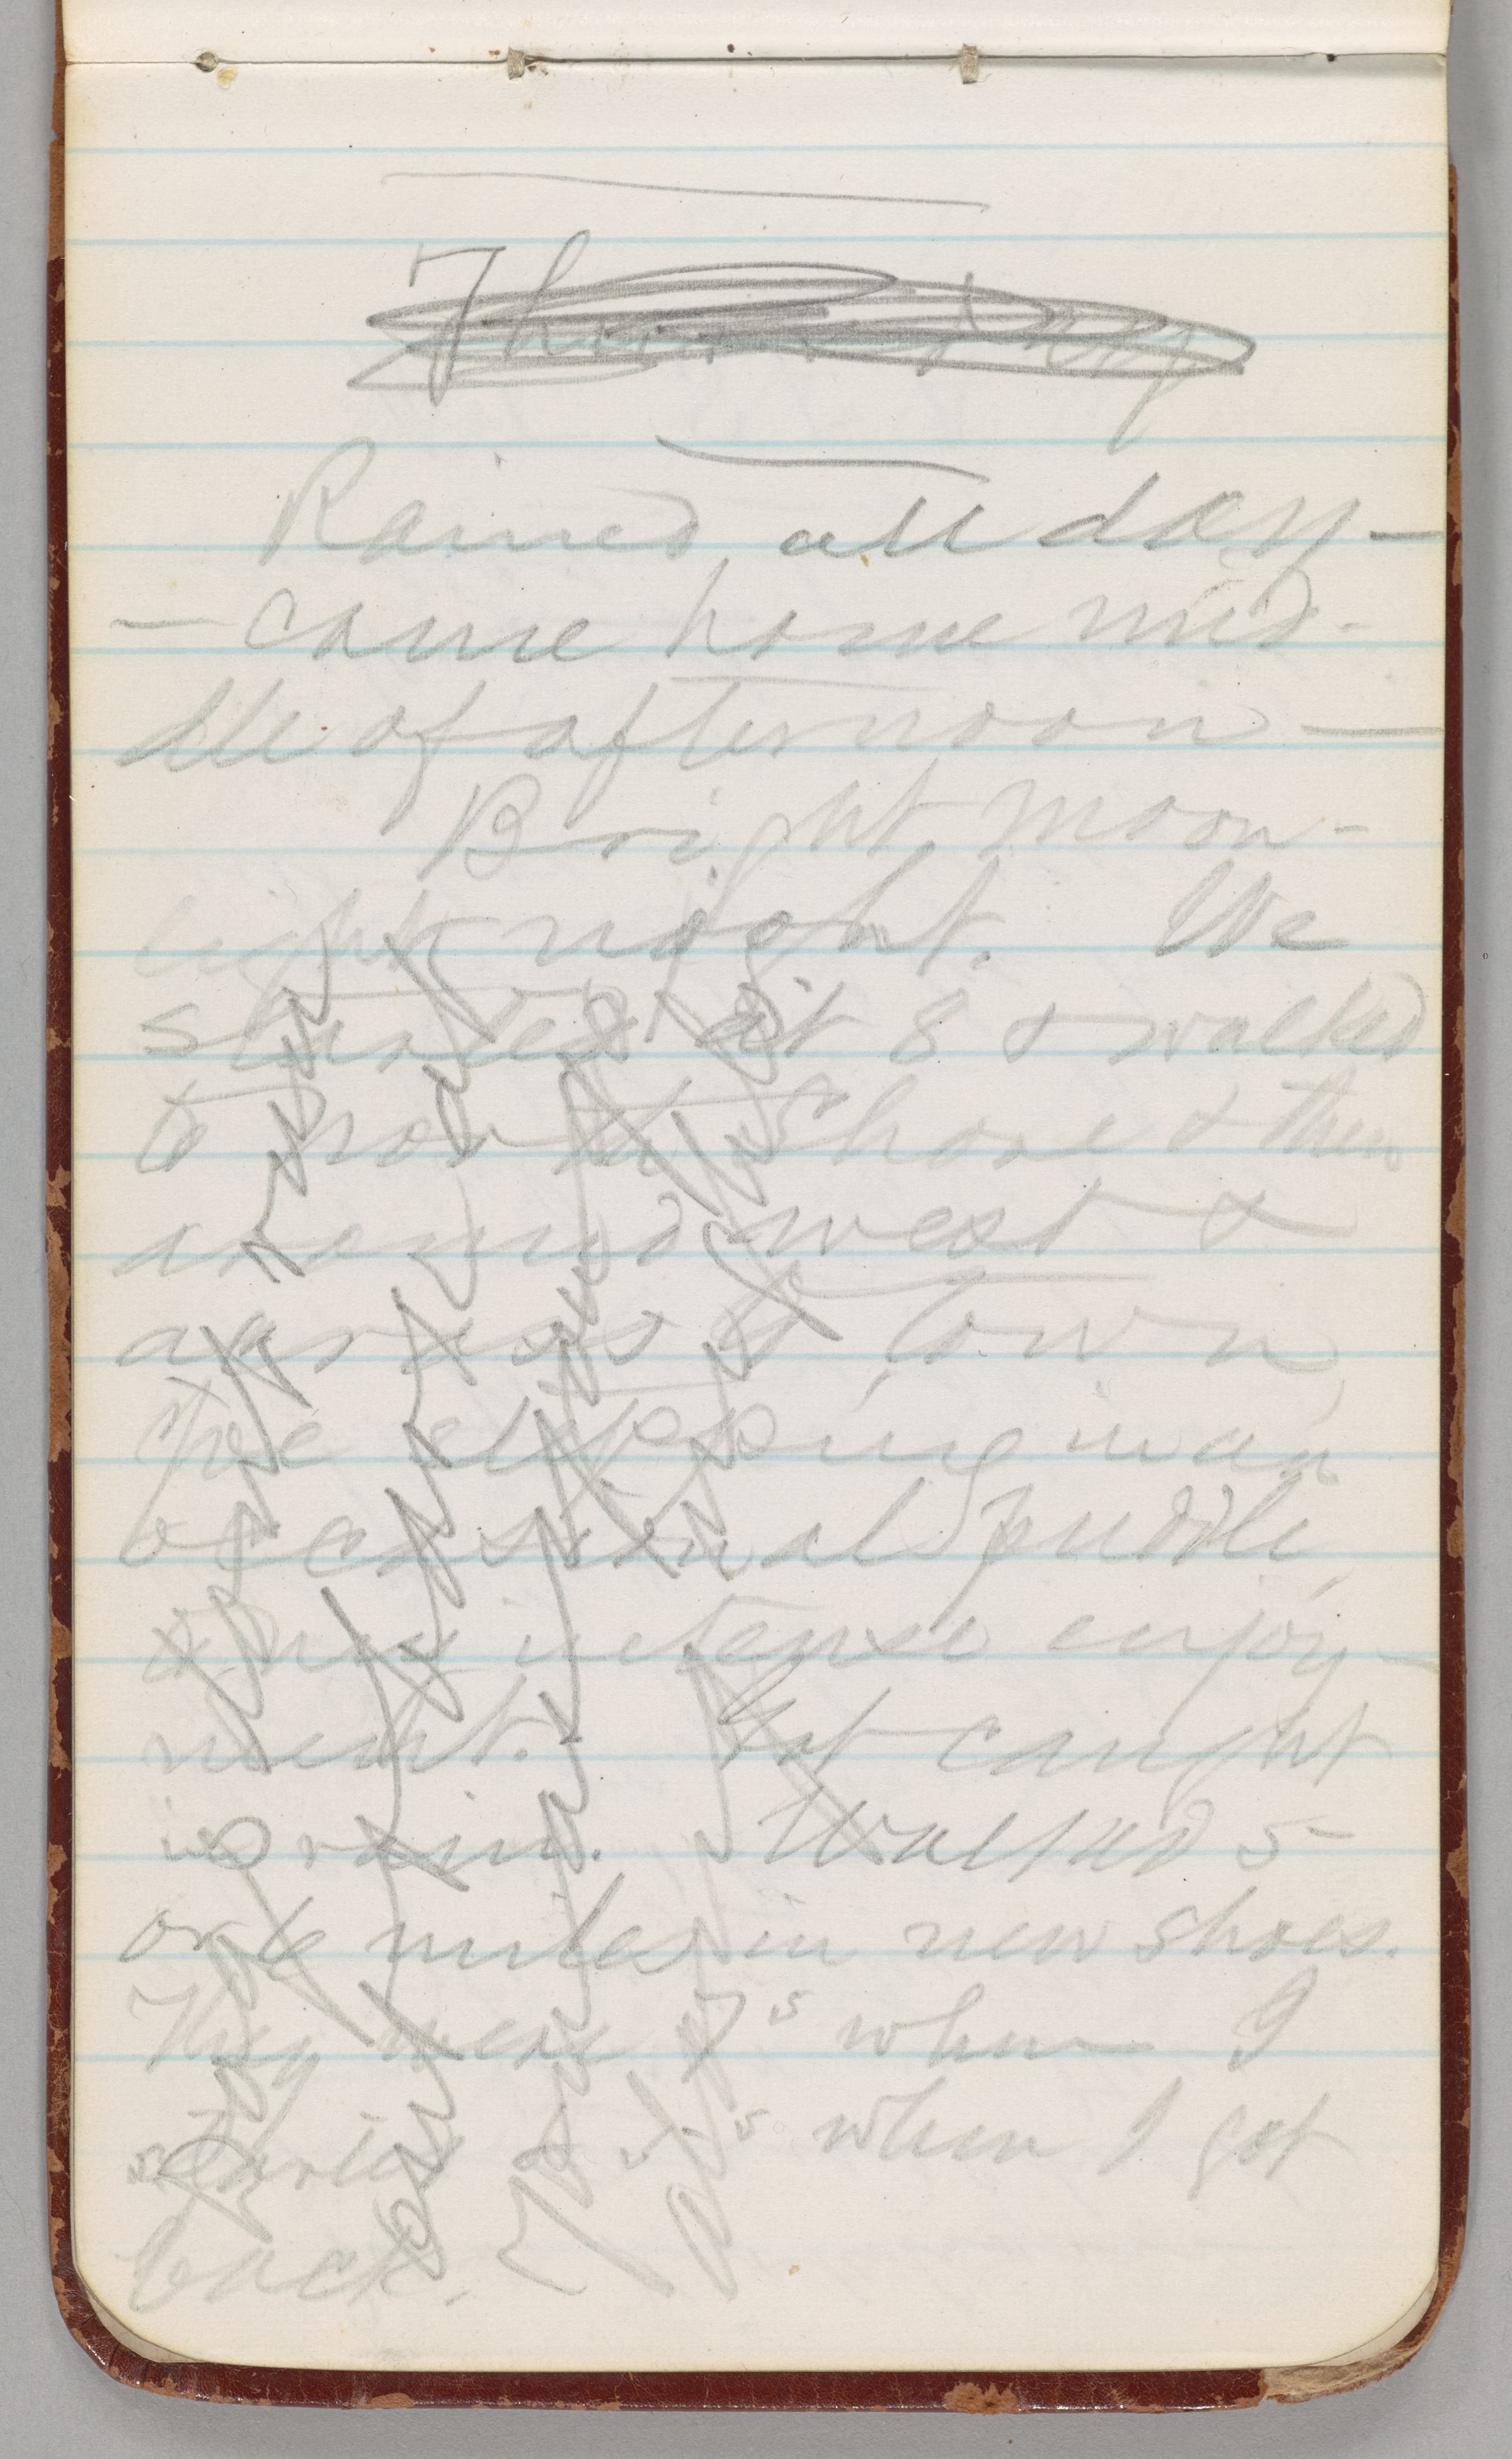 Thursday
Rained all day —
— came home mid-
dle of afternoon —
Bright moon-
light night. We
started at 8 & walked
to north Shore & then
around west &
across to town
slipping in an
occasional puddle
intense enjoy-
ment. Got caught
in rain. Walked 5
or 6 miles in new shoes.
They were 7s when I
started & when I got
back.